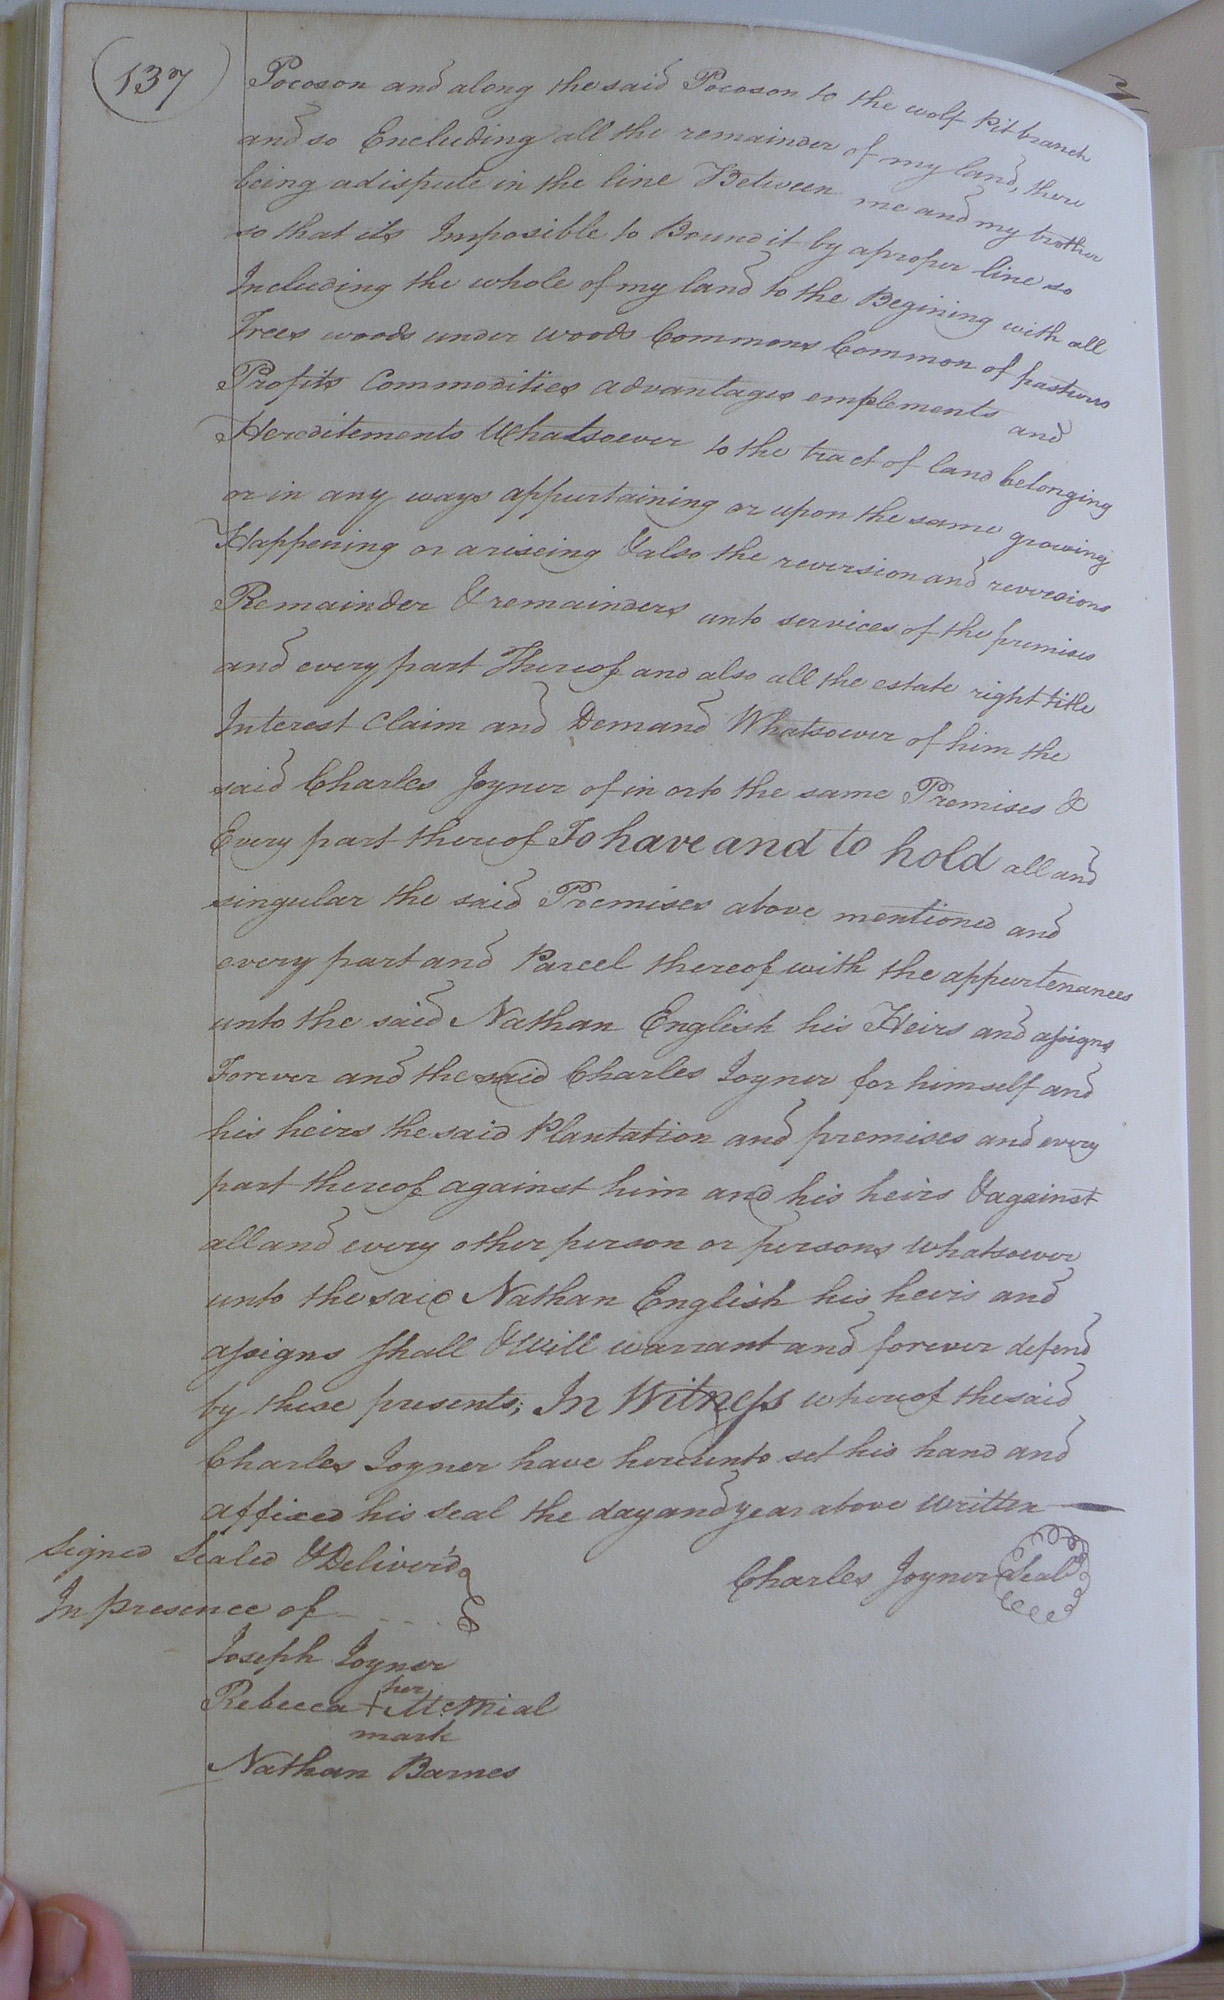 137
Pocoson and along the said Pocoson to the wolf Pit branch
and so Encluding all the remainder of my land, there
being a dispute in the line Between me and my brother
so that its Imposible to Bound it by a proper line so
Including the whole of my land to the Begining with all
Trees woods under woods Commons Common of pasturs
Profits Commodities advantages emplements and
Hereditements Whatsoever to the tract of land belonging
or in any ways appurtaining or upon the same growing
Happening or ariseing & also the reversion and reversions
Remainder & remainders unto services of the premises
and every part Thereof and also all the estate right title
Interest Claim and Demand Whatsoever of him the
said Charles Joyner of in or to the same Premises &
Every part thereof To have and to hold all and
singular the said Premises above mentioned and
every part and Parcel thereof with the appurtenances
unto the said Nathan English his Heirs and assigns
Forever and the said Charles Joyner for himself and
his heirs the said Plantation and premises and every
part thereof against him and his heirs & against
all and every other person or persons whatsoever
unto the said Nathan English his heirs and
assigns shall & Will warrant and forever defend
by these presents; In Witness whereof the said
Charles Joyner have hereunto set his hand and
affixed his seal the day and year above written
Signed Sealed & Deliver'd
In presence of
Charles Joyner Seal
Joseph Joyner
her
Rebecca +
mark
Nathan Barnes